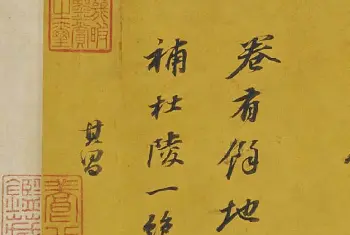 卷有餘地
補杜陵一絶
其昌